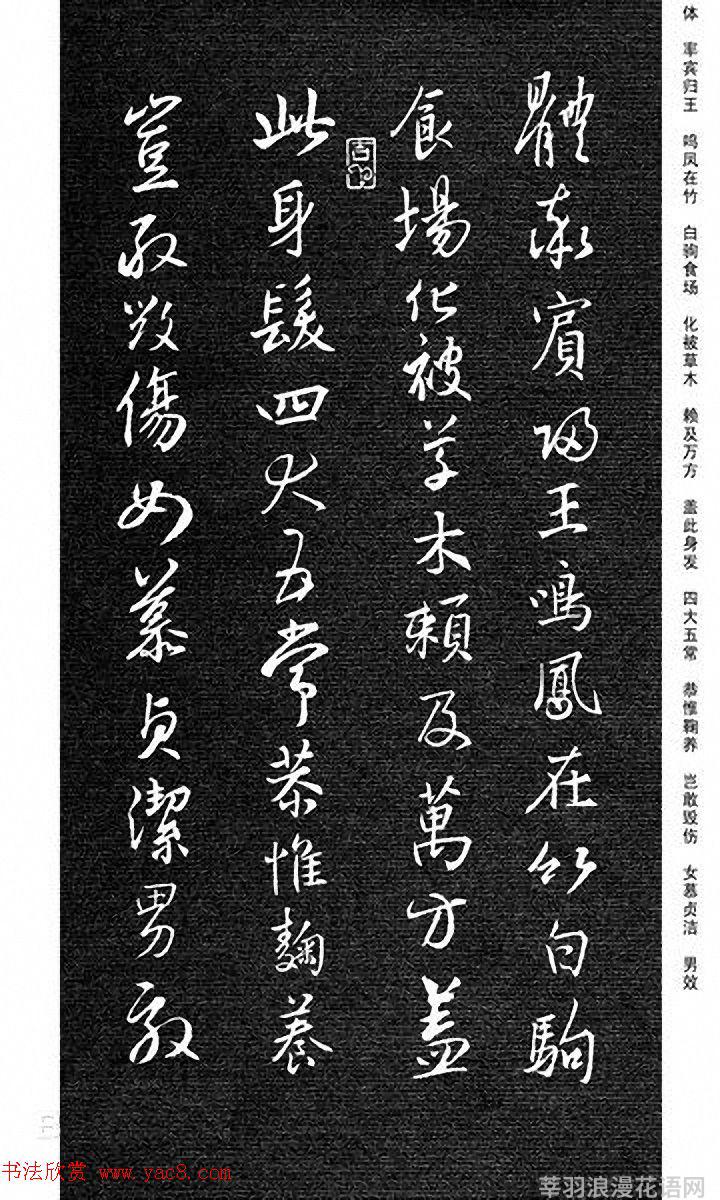 体 率宾归王 鸣凤在竹 白驹食场 化被草木 赖及万方 盖此身发 四大五常 恭惟鞠养 岂敢毁伤 女慕贞洁 男效
體率賓歸王鳴鳳在竹白駒
食場化被草木賴及萬方蓋
此身髮四大五常恭惟鞠養
豈敢毀傷女慕貞潔男效
书法欣赏 www.yac8.com
莘羽浪漫花语网